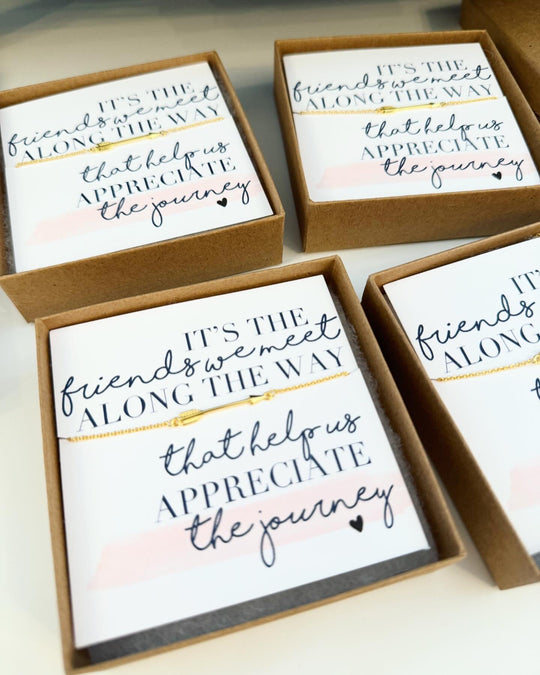 IT'S THE
friends we meet
ALONG THE WAY
that help us
APPRECIATE
the journey
IT'S THE
friends we meet
ALONG THE WAY
that help us
APPRECIATE
the journey
IT'S THE
friends we meet
ALONG THE WAY
that help us
APPRECIATE
the journey
IT'S
friends
ALONG
th
A